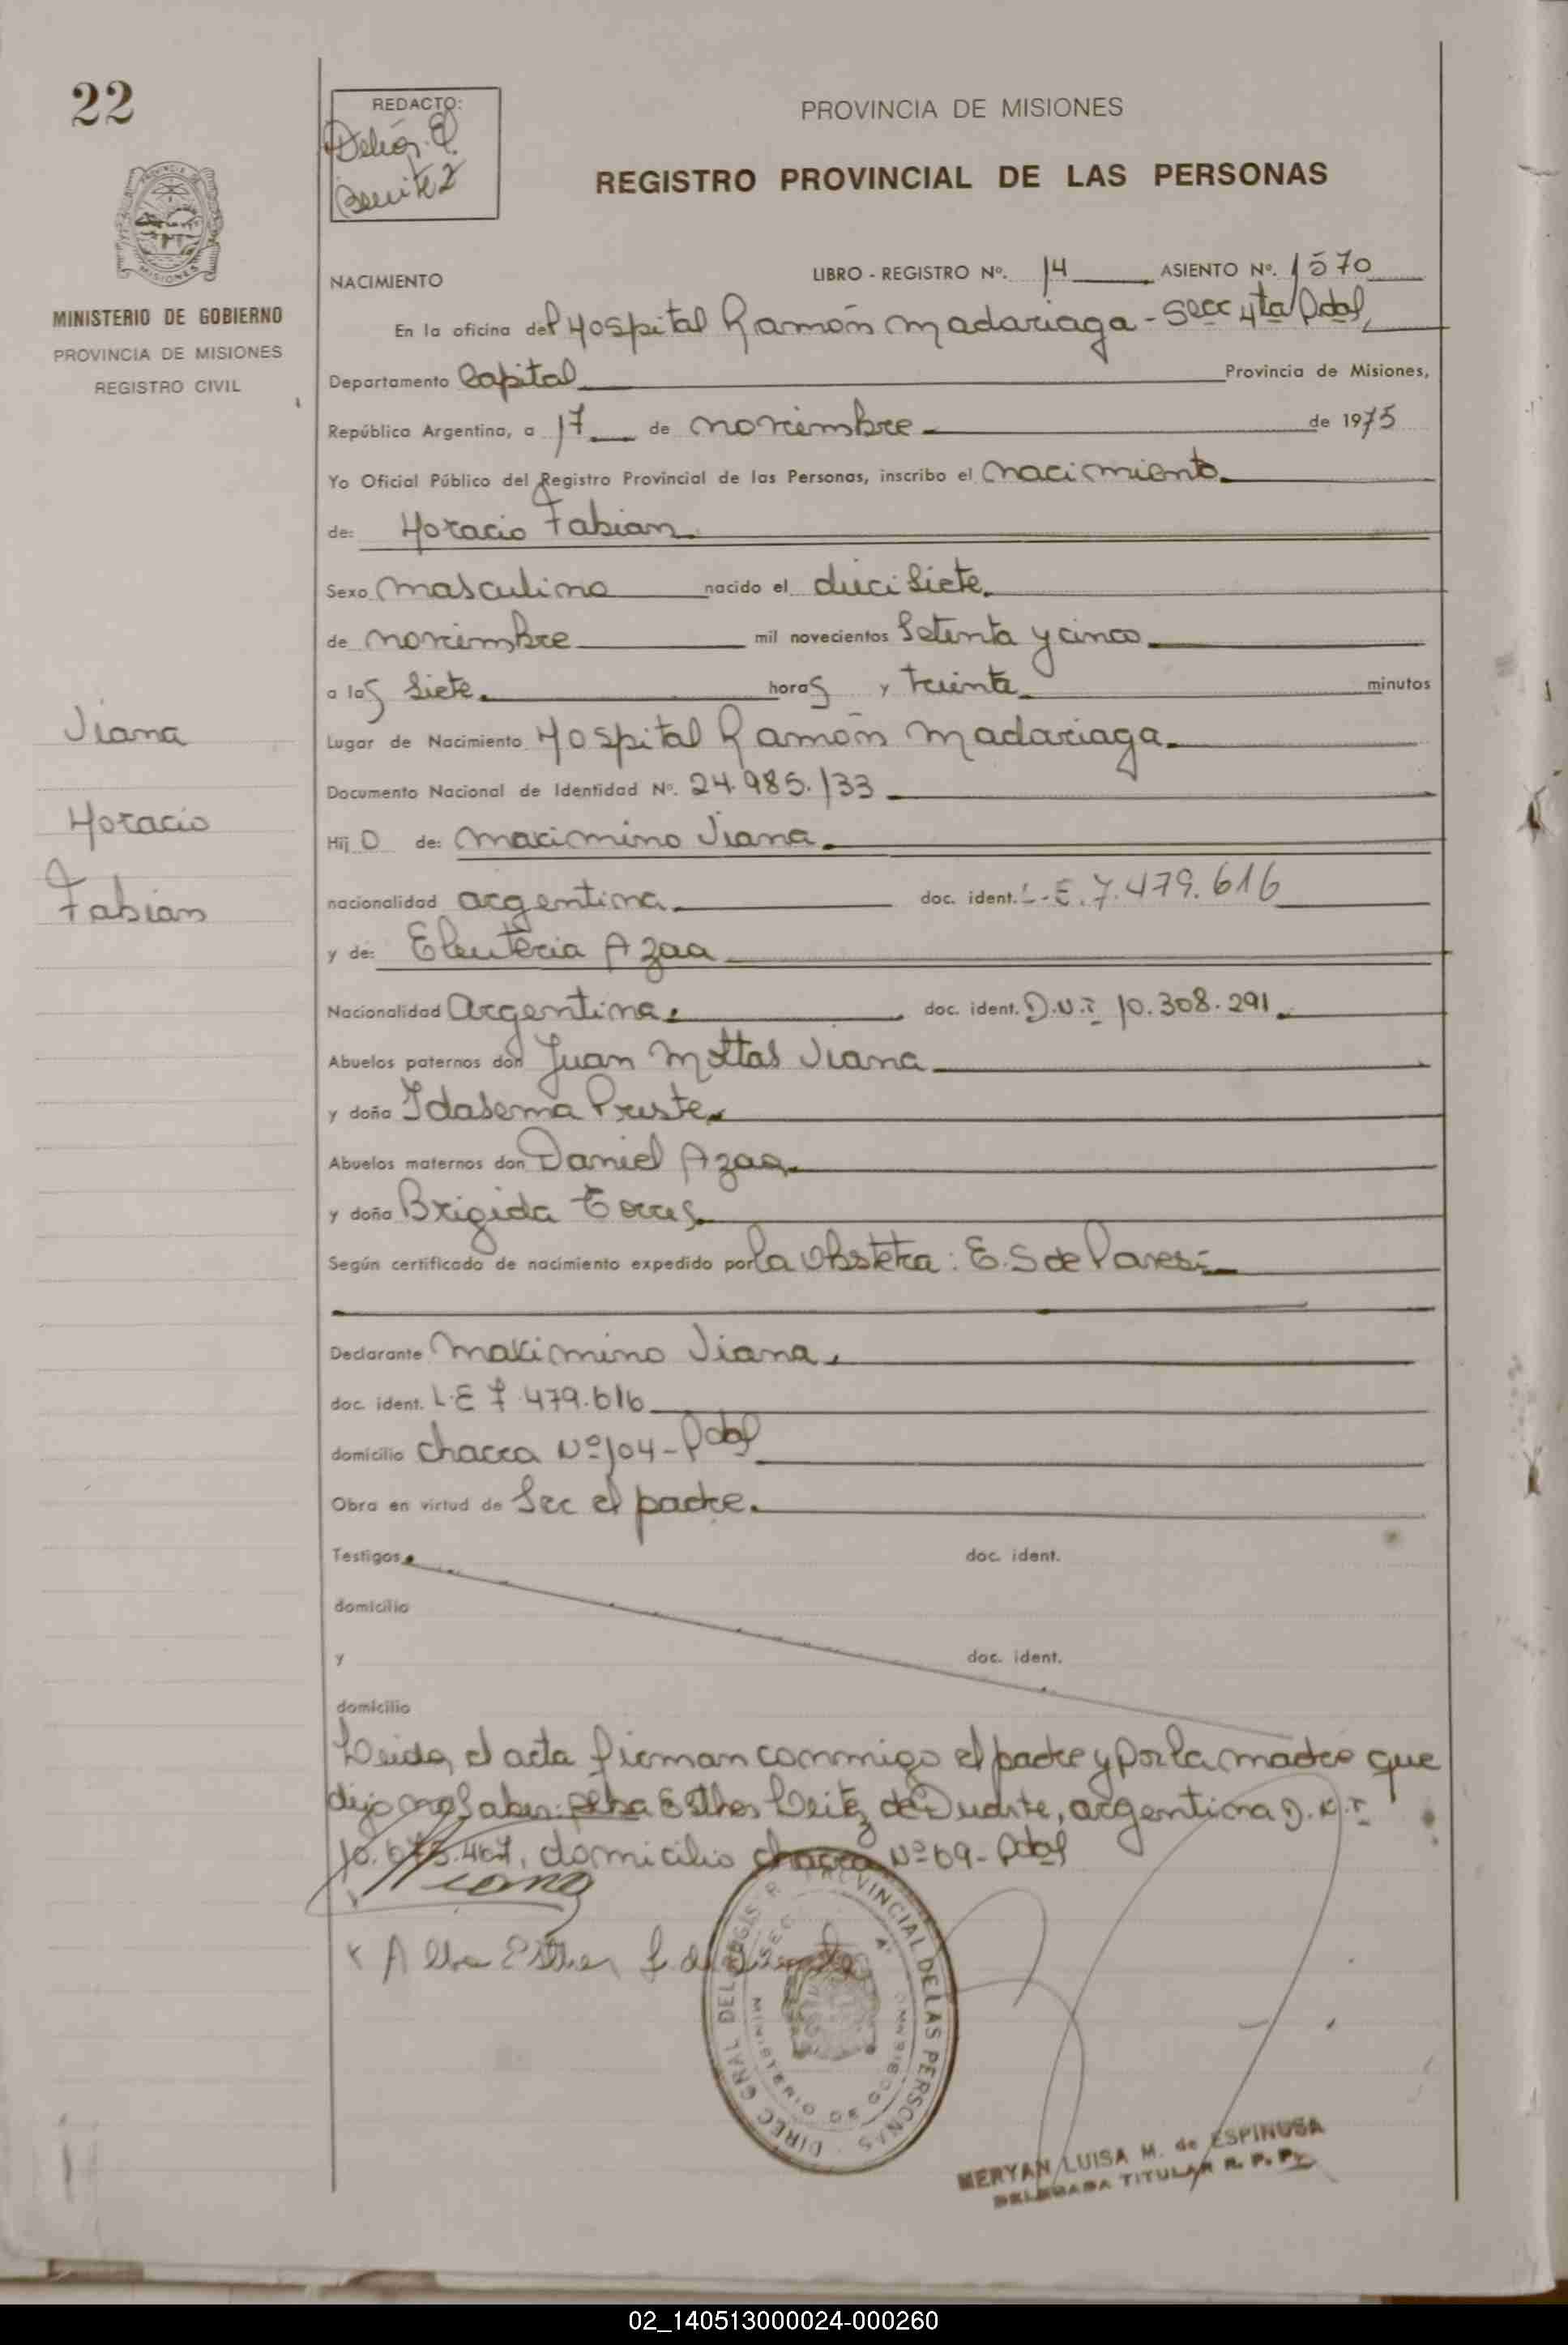 22
REDACTO:
Benitez
PROVINCIA DE MISIONES
REGISTRO PROVINCIAL DE LAS PERSONAS
MISIONES
MINISTERIO DE GOBIERNO
PROVINCIA DE MISIONES
REGISTRO CIVIL
NACIMIENTO LIBRO - REGISTRO Nº. 14 ASIENTO Nº. 1570
En la oficina del Hospital Ramón Madariaga - Secc 4ta Pdas,
Departamento Capital Provincia de Misiones,
República Argentina, a 17 de noviembre de 1975
Yo Oficial Público del Registro Provincial de las Personas, inscribo el nacimiento
de: Horacio Fabian
Sexo masculino nacido el diecisiete
de noviembre mil novecientos setenta y cinco
a las siete horas y treinta minutos
Lugar de Nacimiento Hospital Ramón Madariaga
Documento Nacional de Identidad Nº. 24.985.133
Viana
Horacio
Fabian
Hijo de: Maximino Viana
nacionalidad argentina doc. ident. L.E. 7.479.616
y de: Eleuteria Azaa
Nacionalidad Argentina doc. ident. D.N.I 10.308.291
Abuelos paternos don Juan Mattas Viana
y doña Idasema Prieste
Abuelos maternos don Daniel Azaa
y doña Brigida Torres
Según certificado de nacimiento expedido por la obstetra: E. S de Paresi
Declarante Maximino Viana
doc. ident. L.E 7.479.616
domicilio chacra Nº 104 - Pdas
Obra en virtud de ser el padre.
Testigos doc. ident.
domicilio
y doc. ident.
domicilio
Leida el acta firman conmigo el padre y por la madre que
dijo no saber: Esther Leite de Duarte, argentina D.N.I
10.673.467, domicilio chacra Nº 69 - Pdas
Viana
x Alba Esther L de Duarte
DIREC GRAL DEL REGIS PROVINCIAL DE LAS PERSONAS
SEC 4ª
MINISTERIO DE GOBIERNO
MERYAN LUISA M. de ESPINOSA
DELEGADA TITULAR R. P. P.
02_140513000024-000260